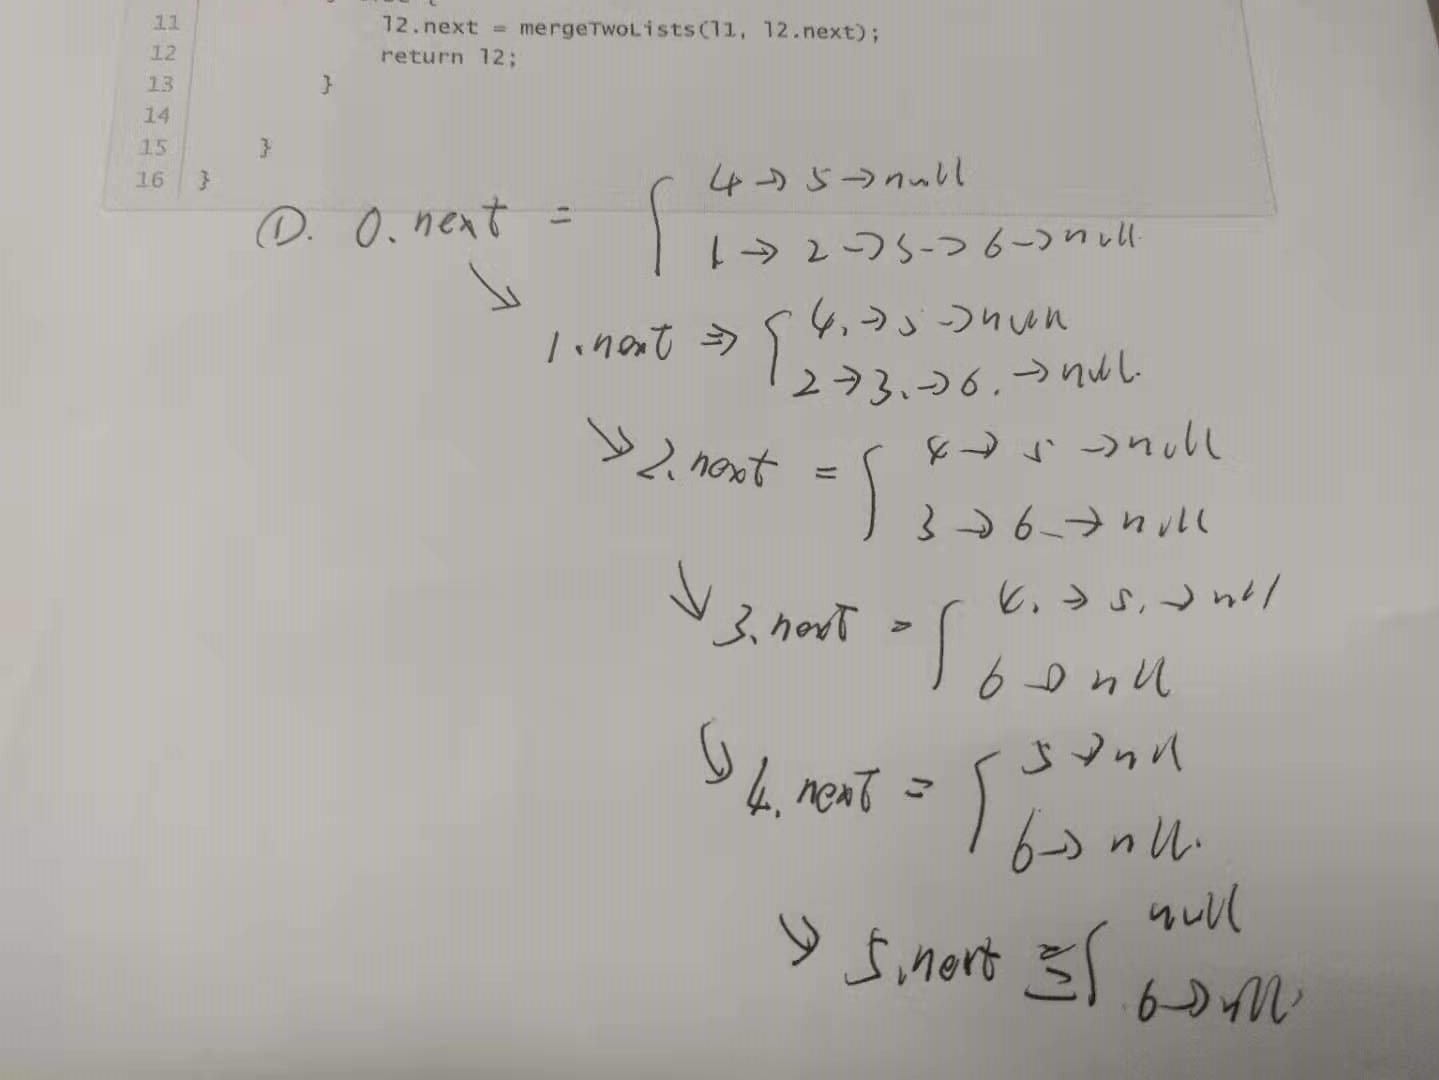 11 l2.next = mergeTwoLists(l1, l2.next);
12 return l2;
13 }
14
15 }
16 }
①. 0.next = { 4 → 5 → null
1 → 2 → 5 → 6 → null
↘ 1.next ⇒ { 4. → 5 → null
2 → 3. → 6. → null.
↘ 2.next = { 4 → 5 → null
3 → 6 → null
↘ 3.next = { 4. → 5. → null
6 → null
↘ 4.next = { 5 → null
6 → null.
↘ 5.next = { null
6 → null.